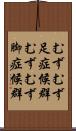 むずむず脚症候群
むずむず足症候群